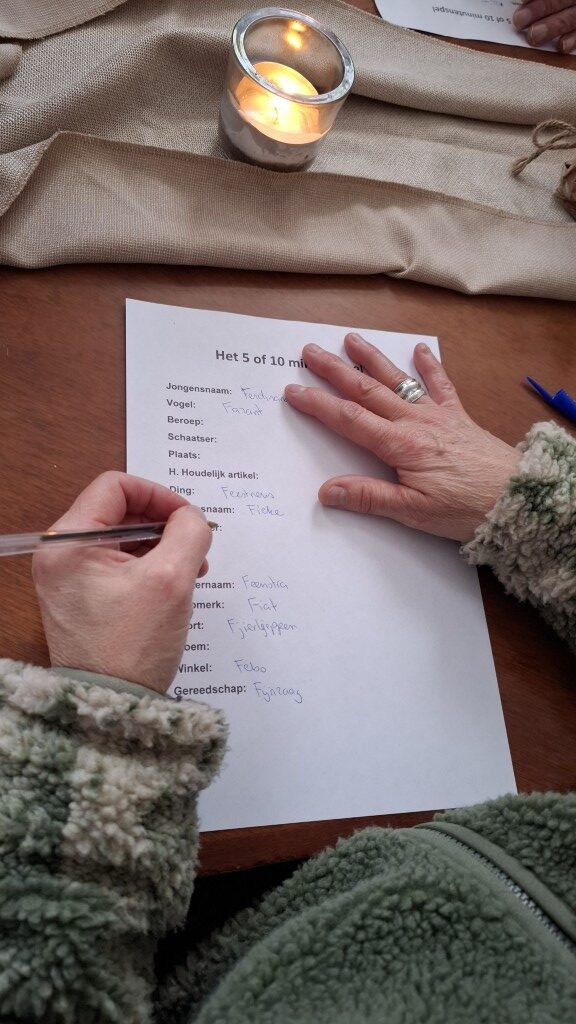 5 of 10 minutenspel
Het 5 of 10 mi
Jongensnaam: Ferdinand
Vogel: Fazant
Beroep:
Schaatser:
Plaats:
H. Houdelijk artikel:
Ding: Feestneus
snaam: Fieke
er:
ernaam: Feenstra
omerk: Fiat
ort: Fjierljeppen
oem:
Winkel: Febo
Gereedschap: Fijnzaag